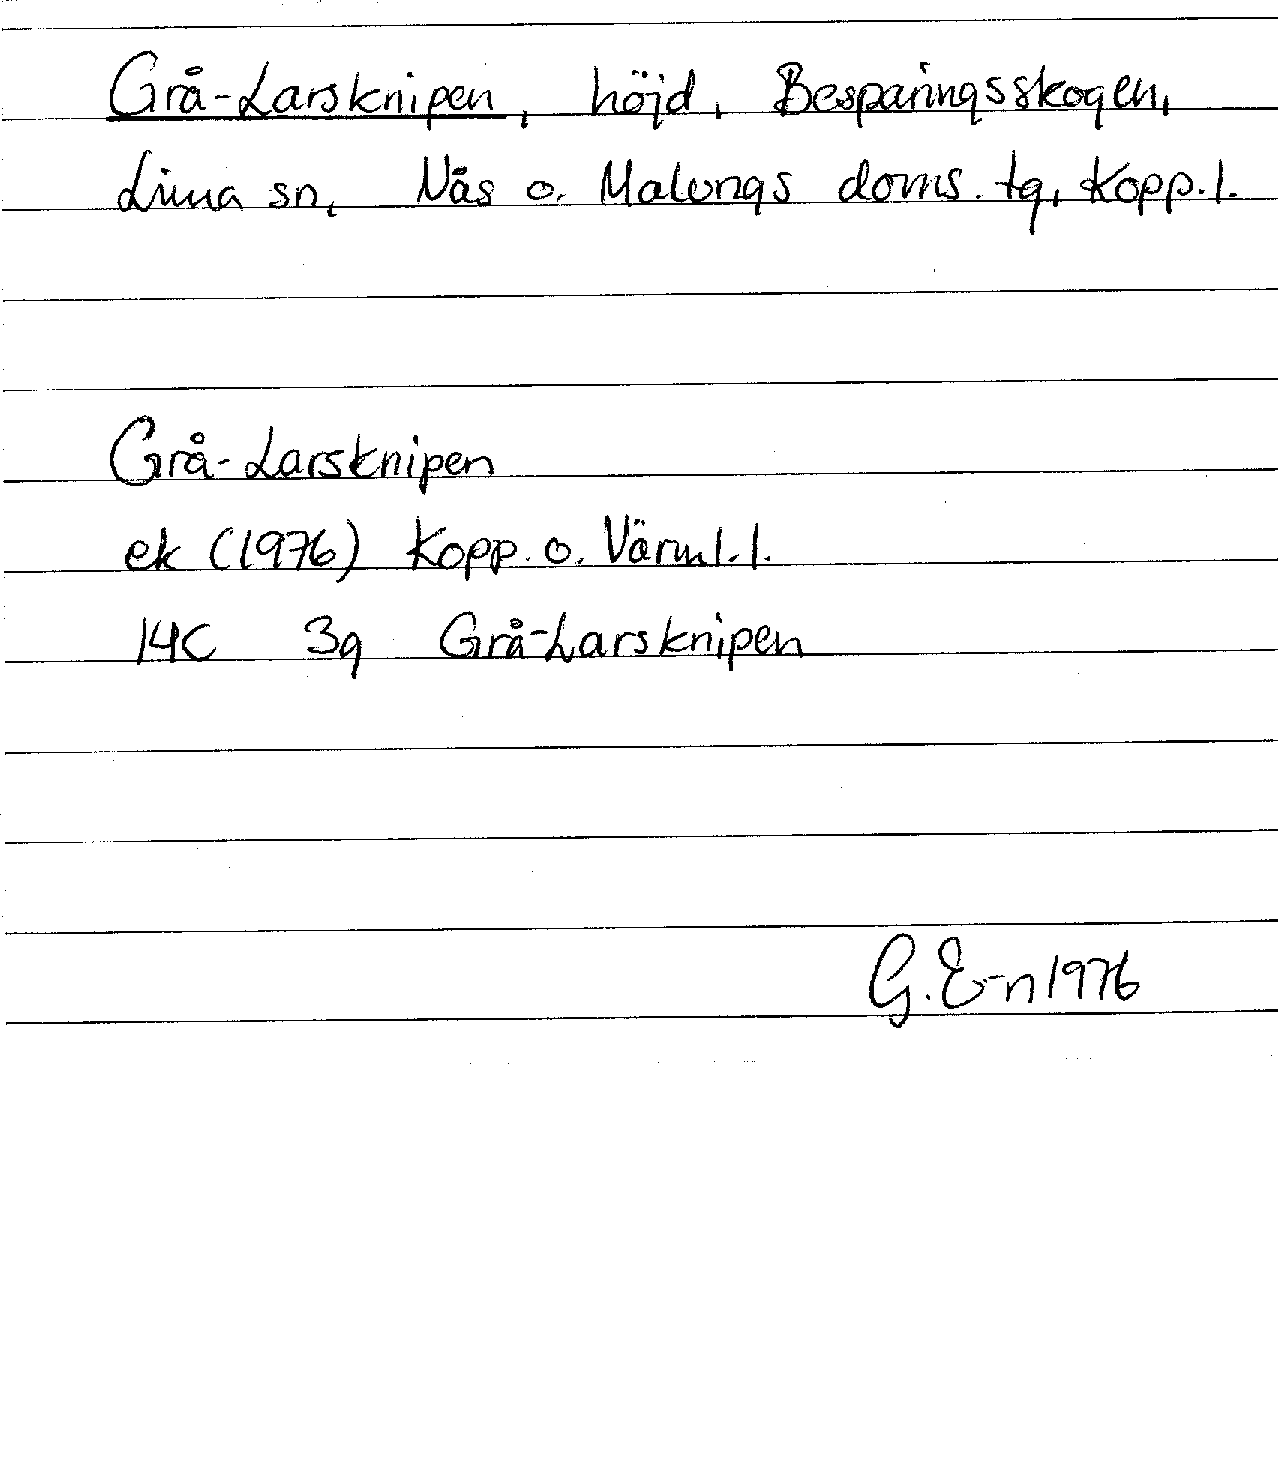 Grå-Larsknipen, höjd, Besparingsskogen,
Lima sn, Nås o. Malungs doms. tg, Kopp. l.
Grå-Larsknipen
ek (1976) Kopp. o. Värml. l.
14C 3g Grå-Larsknipen
G. E-n 1976